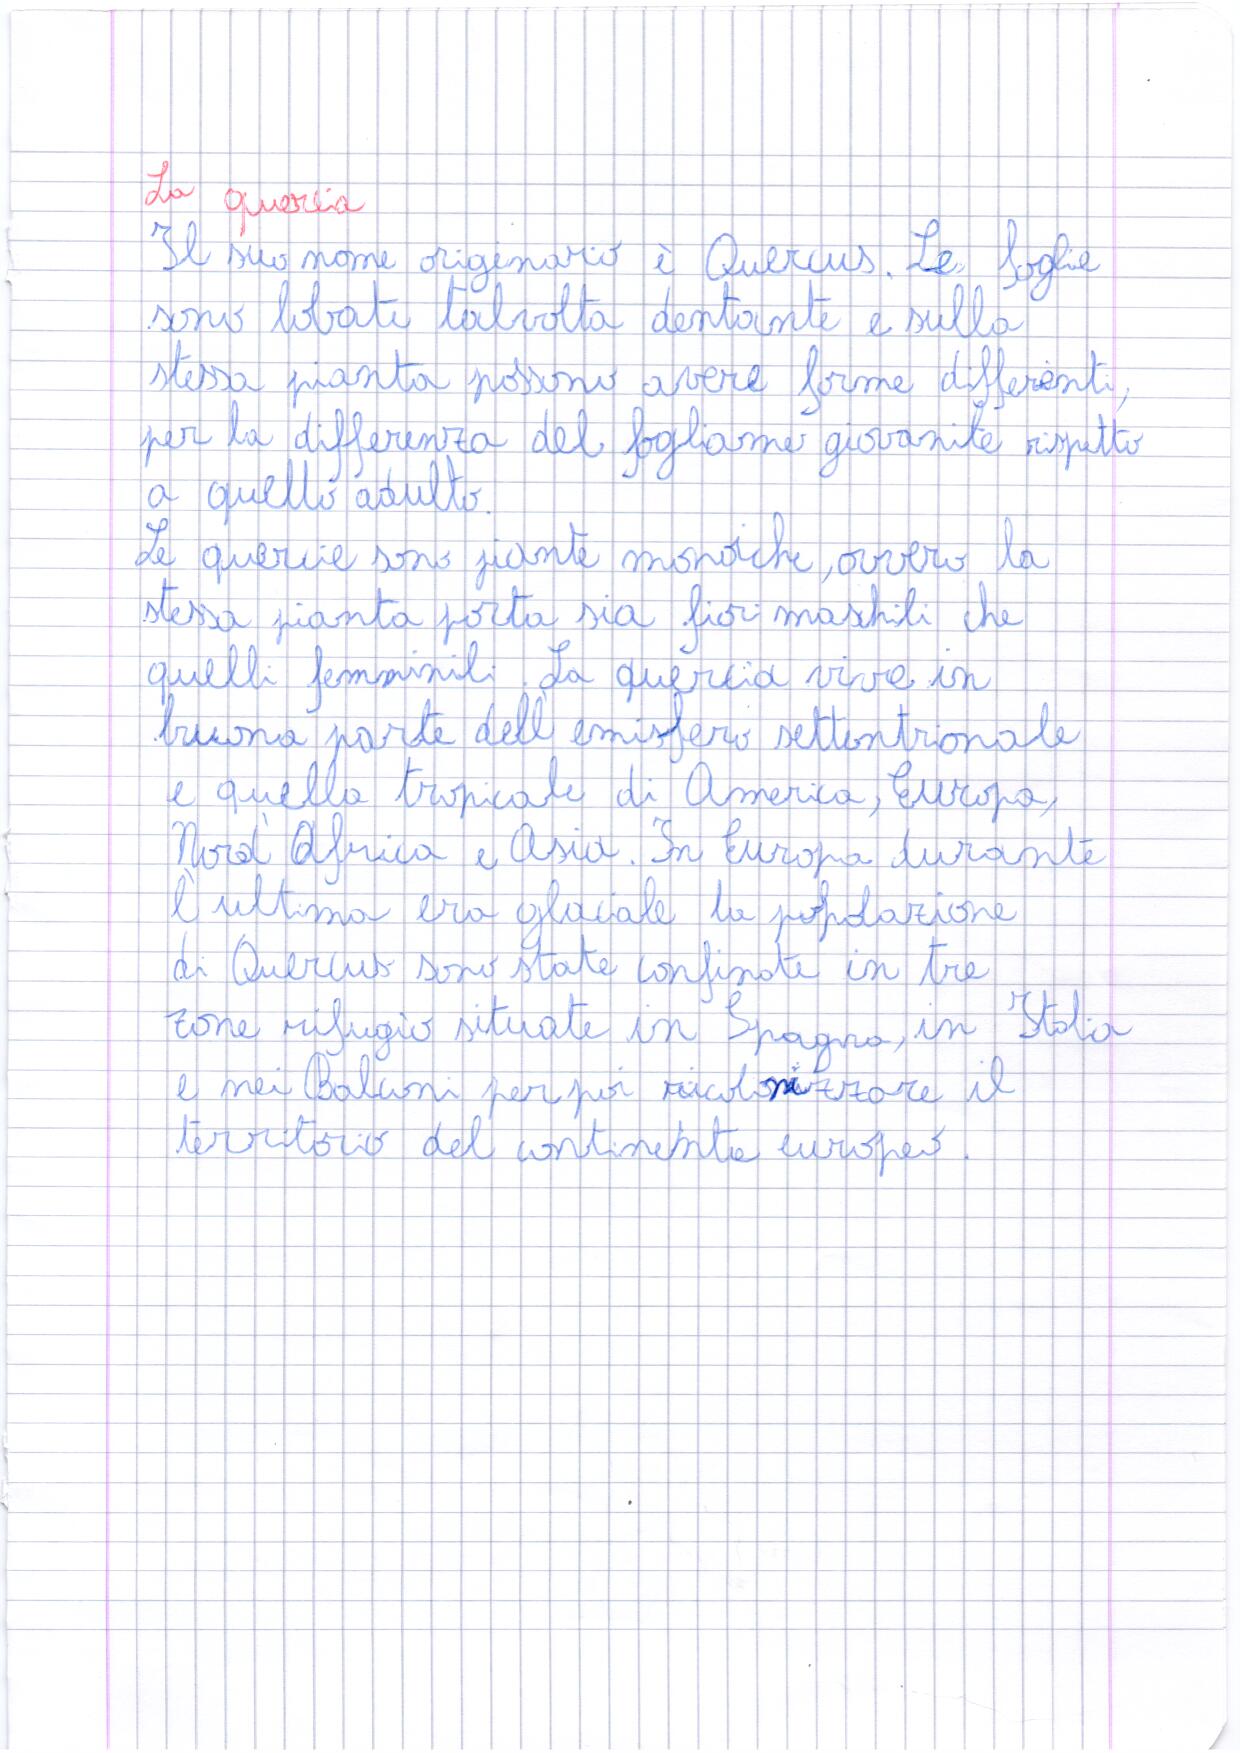 La quercia
Il suo nome originario è Quercus. Le foglie
sono lobate talvolta dentante e sulla
stessa pianta possono avere forme differenti,
per la differenza del fogliame giovanile rispetto
a quello adulto.
Le quercie sono piante monoiche, ovvero la
stessa pianta porta sia fiori maschili che
quelli femminili. La quercia vive in
buona parte dell'emisfero settentrionale
e quella tropicale di America, Europa,
Nord Africa e Asia. In Europa durante
l'ultima era glaciale la popolazione
di Quercus sono state confinate in tre
zone rifugio situate in Spagna, in Italia
e nei Balcani per poi ricolonizzare il
territorio del continente europeo.